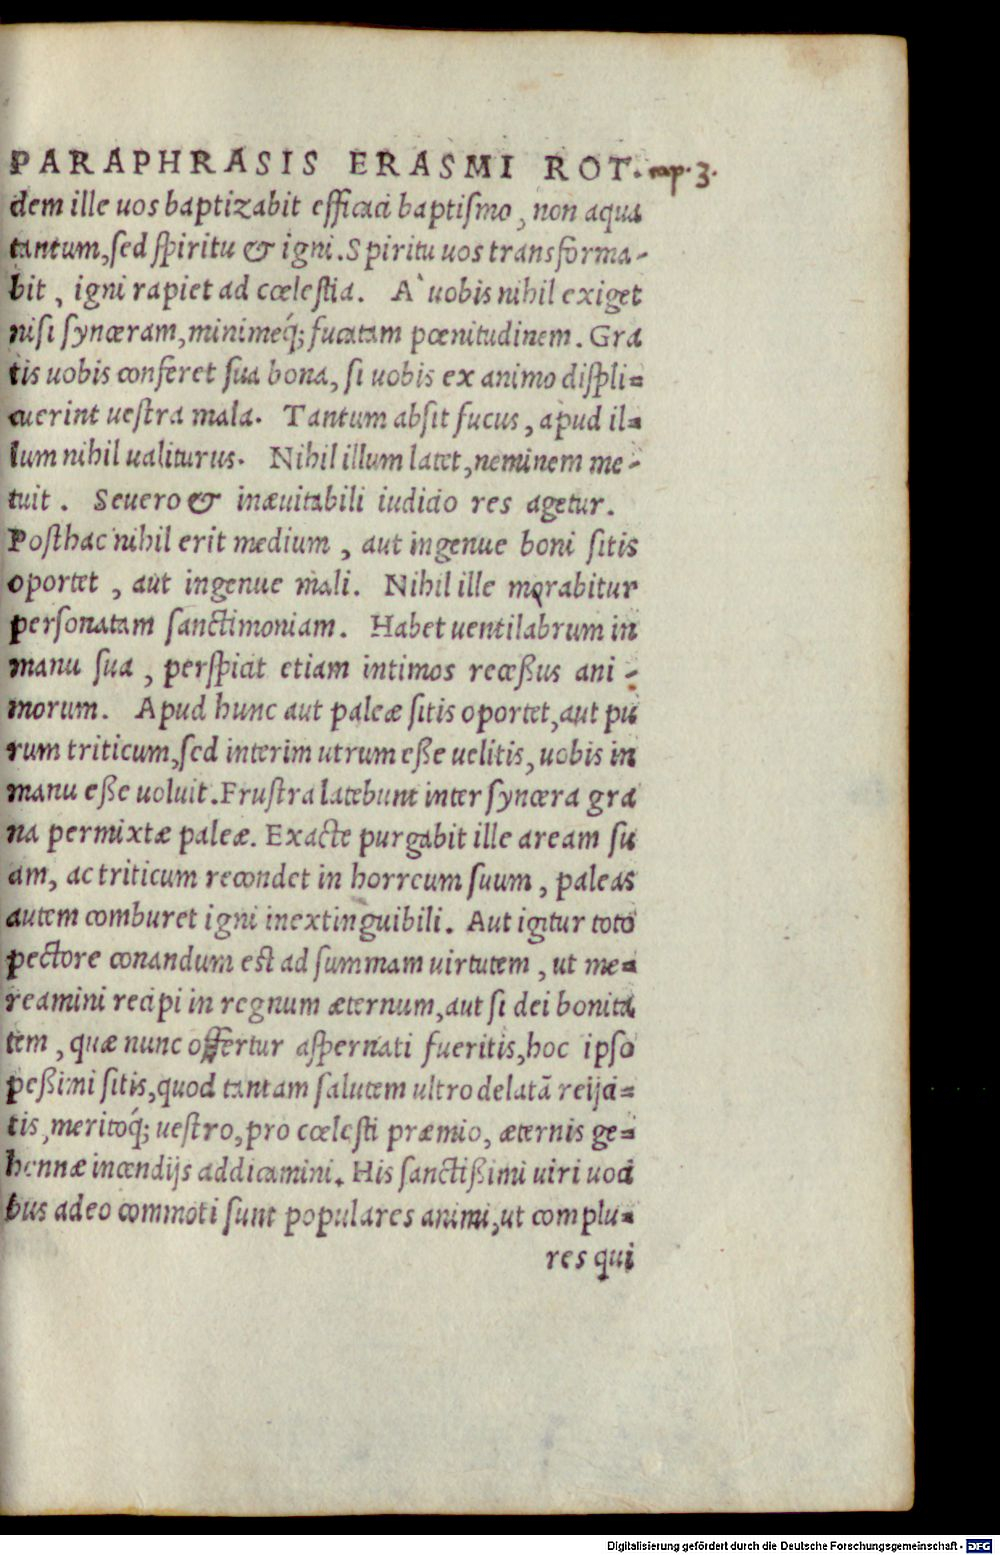 PARAPHRASIS ERASMI ROT. cap. 3.
dem ille uos baptizabit efficaci baptiſmo, non aqua
tantum, ſed ſpiritu & igni. Spiritu uos transforma-
bit, igni rapiet ad cœleſtia. A` uobis nihil exiget
niſi ſynceram, minimeq́; fucatam pœnitudinem. Gra
tis uobis conferet ſua bona, ſi uobis ex animo diſpli-
cuerint ueſtra mala. Tantum abſit fucus, apud il-
lum nihil ualiturus. Nihil illum latet, neminem me-
tuit. Seuero & inæuitabili iudicio res agetur.
Poſthac nihil erit medium, aut ingenue boni ſitis
oportet, aut ingenue mali. Nihil ille morabitur
perſonatam ſanctimoniam. Habet uentilabrum in
manu ſua, perſpicit etiam intimos receßus ani-
morum. Apud hunc aut paleæ ſitis oportet, aut pu
rum triticum, ſed interim utrum eße uelitis, uobis in
manu eße uoluit. Fruſtra latebunt inter ſyncera gra
na permixtæ paleæ. Exacte purgabit ille aream ſu
am, ac triticum recondet in horreum ſuum, paleas
autem comburet igni inextinguibili. Aut igitur toto
pectore conandum eſt ad ſummam uirtutem, ut me-
reamini recipi in regnum æternum, aut ſi dei bonita
tem, quæ nunc offertur aſpernati fueritis, hoc ipſo
peßimi ſitis, quod tantam ſalutem ultro delatā reijci-
tis, meritoq́; ueſtro, pro cœleſti præmio, æternis ge-
hennæ incendijs addicamini. His ſanctißimi uiri uoci
bus adeo commoti ſunt populares animi, ut complu-
res qui
Digitalisierung gefördert durch die Deutsche Forschungsgemeinschaft - DFG